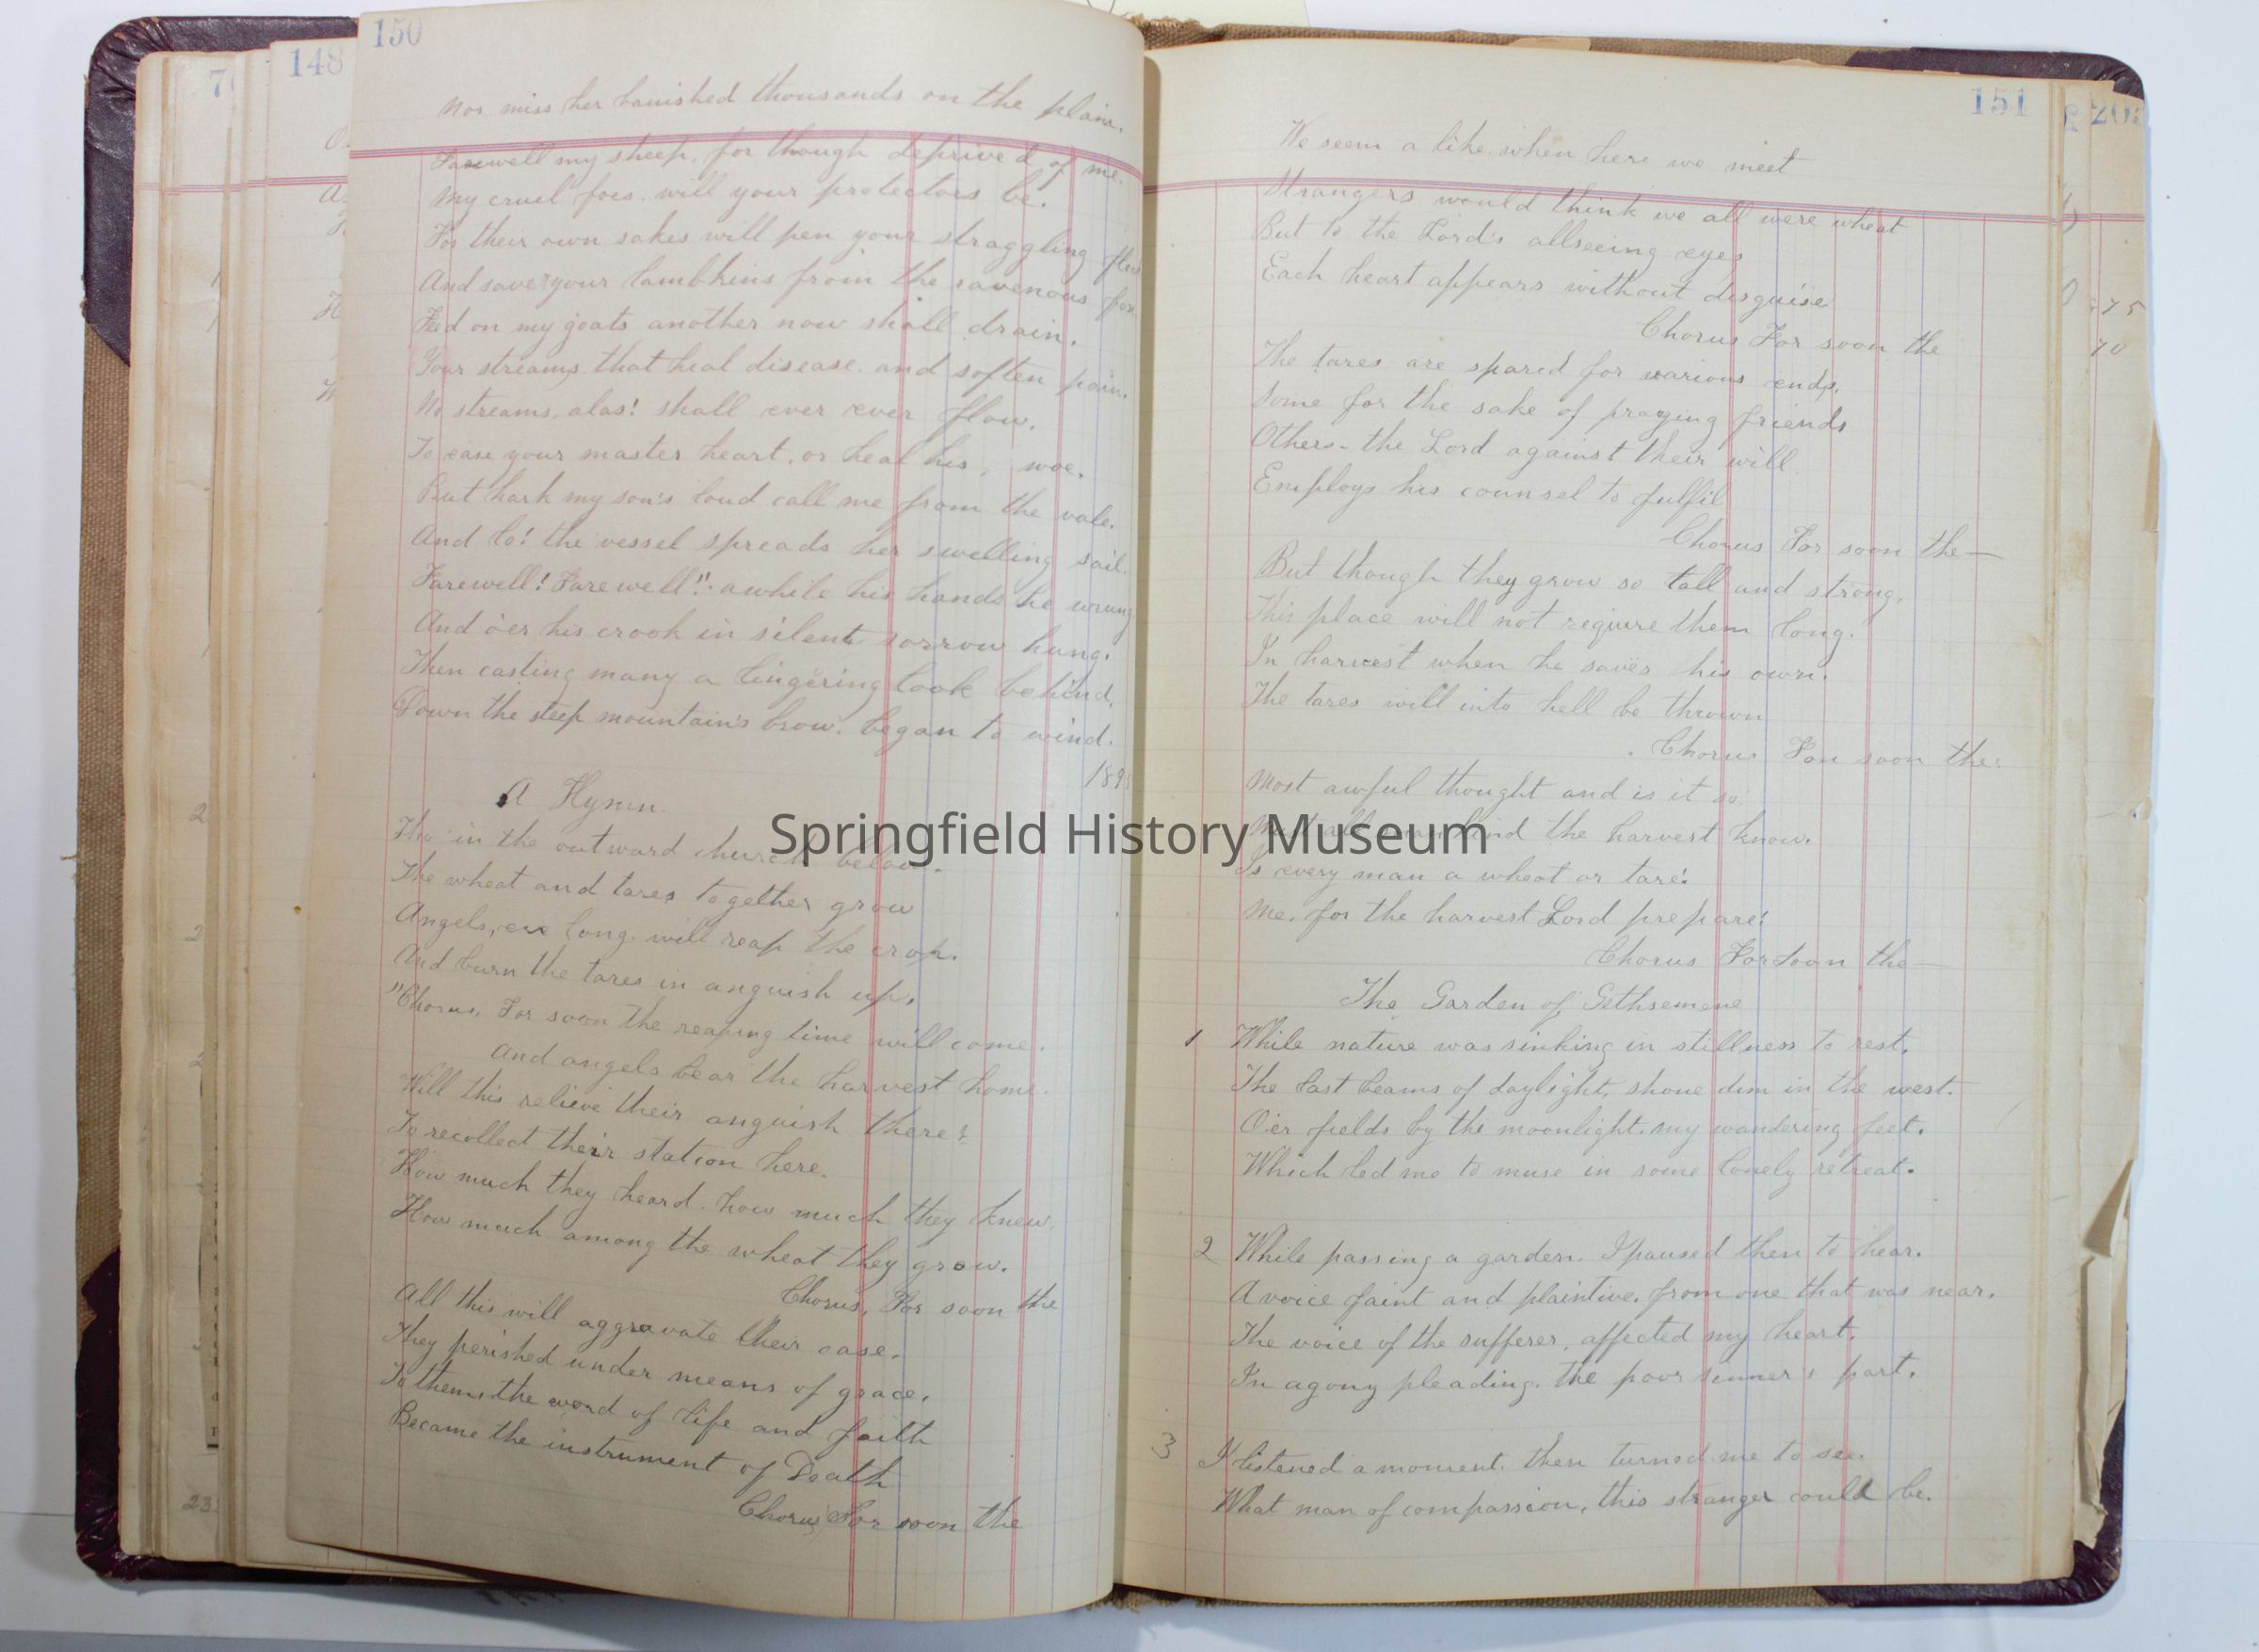 150
Nor miss her banished thousands on the plain.
Farewell my sheep, for though deprived of me.
My cruel foes. will your protectors be.
For their own sakes will pen your straggling
And save your lambkins from the ravenous
Feed on my goats another now shall drain.
Your streams that heal disease. and soften pain.
No streams, alas! shall ever ever flow.
To ease your master heart. or heal his, woe.
But hark my son's loud call me from the vale.
And lo! the vessel spreads her swelling sail.
Farewell! Farewell!! awhile his hands he wrung
And o'er his crook in silent sorrow hung.
Then casting many a lingering look behind.
Down the steep mountain's brow. began to wind.
A Hymn.
Tho' in the outward church below.
The wheat and tares together grow
Angels, ere long. will reap the crop.
And burn the tares in anguish up.
"Chorus, For soon the reaping time will come.
And angels bear the harvest home.
Will this relieve their anguish there?
To recollect their station here.
How much they heard. how much they knew.
How much among the wheat they grow.
Chorus, For soon the
All this will aggravate their case.
They perished under means of grace.
To them, the word of life and faith
Became the instrument of Death
Chorus For soon the
151
We seem a like when here we meet
Strangers would think we all were wheat
But to the Lord's allseeing eyes
Each heart appears without disguise
Chorus For soon the
The tares are spared for various ends.
Some for the sake of praying friends
Others - the Lord against their will.
Employs his counsel to fulfil
Chorus For soon the —
But though they grow so tall and strong.
This place will not require them long.
In harvest when he saves his own.
The tares will into hell be thrown
Chorus For soon the
Most awful thought and is it so.
Must all mankind the harvest know.
Is every man a wheat or tare!
Me. for the harvest Lord prepare!
Chorus For soon the —
The Garden of Gethsemene
1 While nature was sinking in stillness to rest.
The last beams of daylight, shone dim in the west.
O'er fields by the moonlight. my wandering feet.
Which led me to muse in some lonely retreat.
2 While passing a garden. I paused then to hear.
A voice faint and plaintive. from one that was near.
The voice of the sufferer, affected my heart.
In agony pleading. the poor sinner's part.
3 I listened a moment. then turned me to see.
What man of compassion, this stranger could be.
148
Springfield History Museum